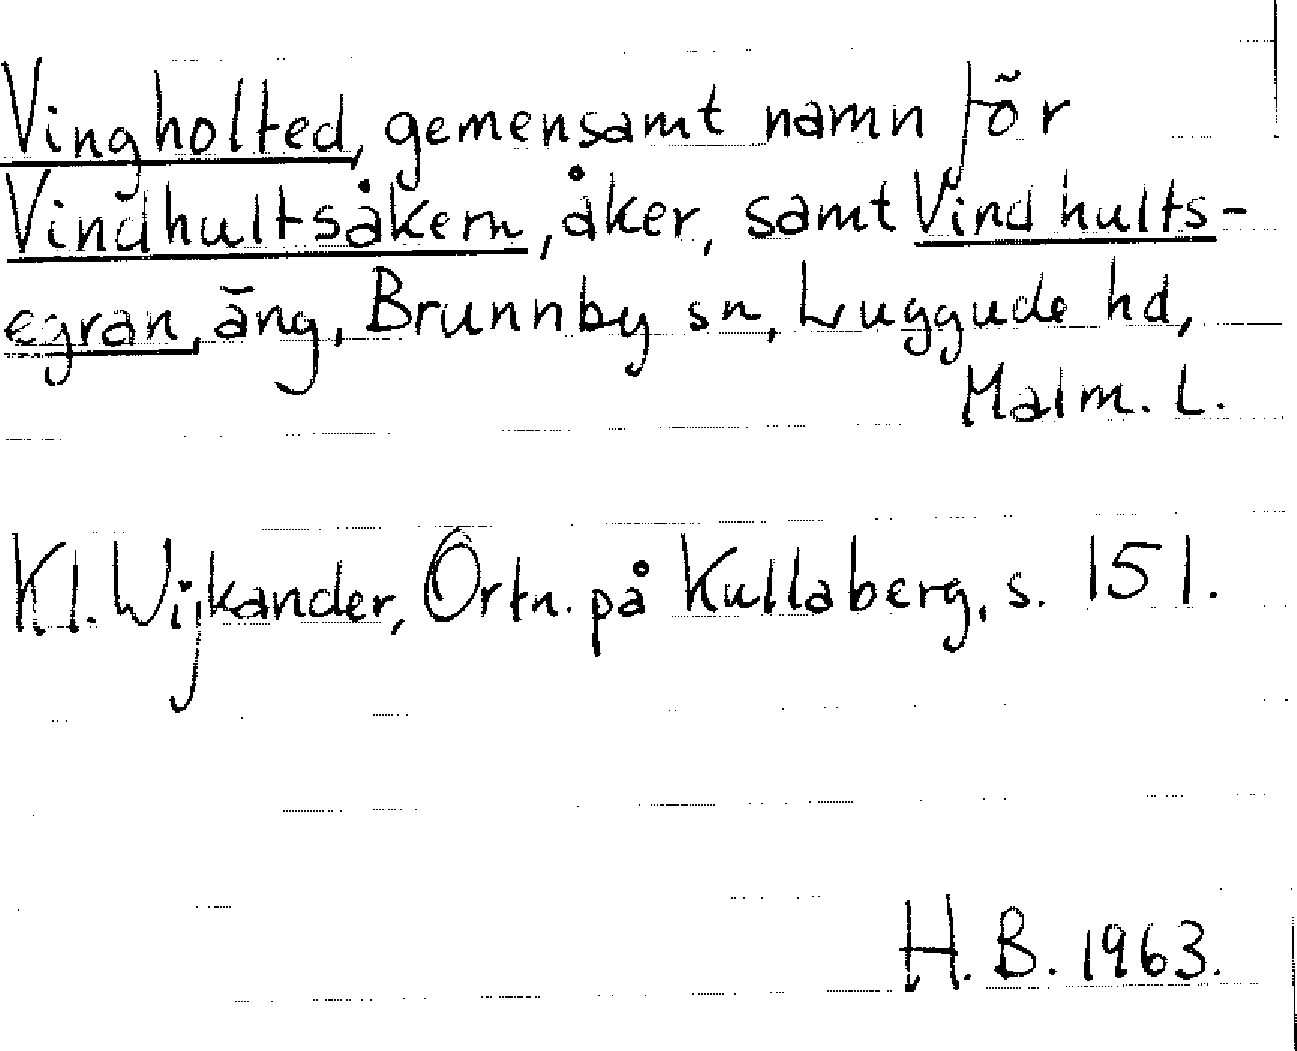 Vingholted, gemensamt namn för
Vindhultsåkern, åker, samt Vindhults-
egran, äng, Brunnby sn, Luggude hd,
Malm. L.
Kl. Wijkander, Ortn. på Kullaberg, s. 151.
H. B. 1963.